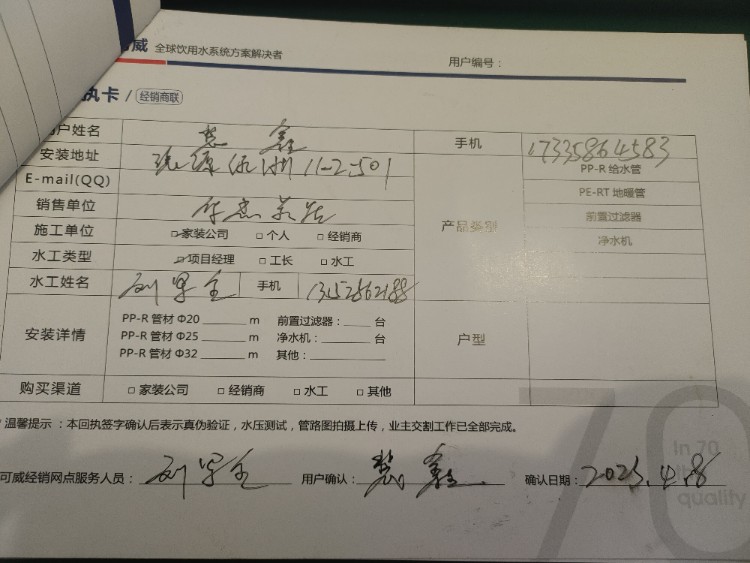 威 全球饮用水系统方案解决者
用户编号：
执卡 / 经销商联
户姓名 鑫 手机 17335864583
安装地址 11-2-501 PP-R 给水管
E-mail(QQ) PE-RT 地暖管
销售单位 产品类别 前置过滤器
施工单位 ☑家装公司 □个人 □经销商 净水机
水工类型 ☑项目经理 □工长 □水工
水工姓名 手机
安装详情 PP-R 管材 Φ20 ____ m 前置过滤器：____ 台 户型
PP-R 管材 Φ25 ____ m 净水机：____ 台
PP-R 管材 Φ32 ____ m 其他：____
购买渠道 □家装公司 □经销商 □水工 □其他
温馨提示：本回执签字确认后表示真伪验证，水压测试，管路图拍摄上传，业主交割工作已全部完成。
可威经销网点服务人员： 用户确认： 鑫 确认日期：2025.4.8
70
In 70
quality